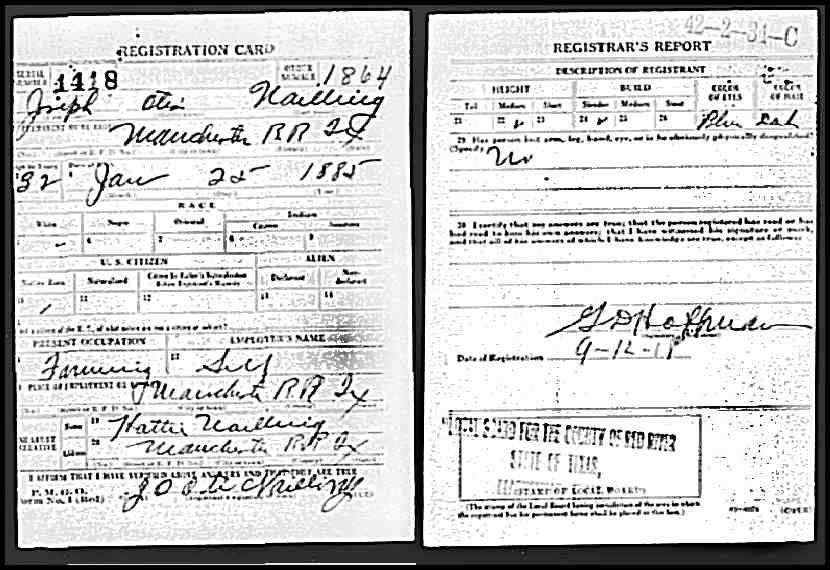 REGISTRATION CARD
SERIAL NUMBER 1418 ORDER NUMBER 1864
Joseph Otis Nailling
Manchester RR Tx
32 Jan 25 1885
RACE
White Negro Oriental Indian
Citizen
6 7 8 9
U. S. CITIZEN ALIEN
Native Born Naturalized Declarant Non-declarant
10 11 12 13 14
PRESENT OCCUPATION EMPLOYER'S NAME
Farming Self
PLACE OF EMPLOYMENT OR
Manchester RR Tx
NEAREST RELATIVE Name 19 Hattie Nailling
Address 20 Manchester RR Tx
I AFFIRM THAT I HAVE VERIFIED ABOVE ANSWERS AND THAT THEY ARE TRUE
P. M. G. O.
Form No. 1 (Red)
Nailling
42-2-31-C
REGISTRAR'S REPORT
DESCRIPTION OF REGISTRANT
HEIGHT BUILD COLOR OF EYES COLOR OF HAIR
Tall Medium Short Slender Medium Stout
21 22 23 24 25 26 Blue Dark
29 Has person lost arm, leg, hand, eye, or is he obviously physically disqualified?
(Specify) No
30 I certify that my answers are true; that the person registered has read or has
had read to him his own answers; that I have witnessed his signature or mark,
and that all of his answers of which I have knowledge are true, except as follows:
G D Hoffman
Date of Registration 9-12-18
LOCAL BOARD FOR THE COUNTY OF RED RIVER
STATE OF TEXAS,
(STAMP OF LOCAL BOARD)
(The stamp of the Local Board having jurisdiction of the area in which
the registrant has his permanent home shall be placed in this box.)